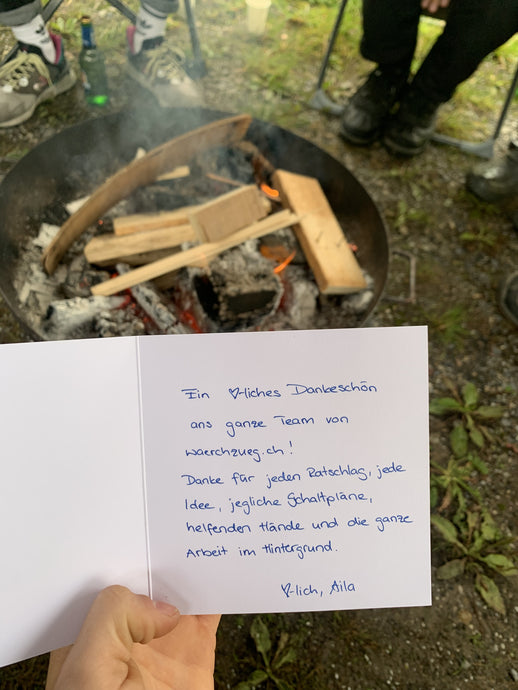 Ein ♡-liches Dankeschön
ans ganze Team von
waerchzueg.ch!
Danke für jeden Ratschlag, jede
Idee, jegliche Schaltpläne,
helfenden Hände und die ganze
Arbeit im Hintergrund.
♡-lich, Aila